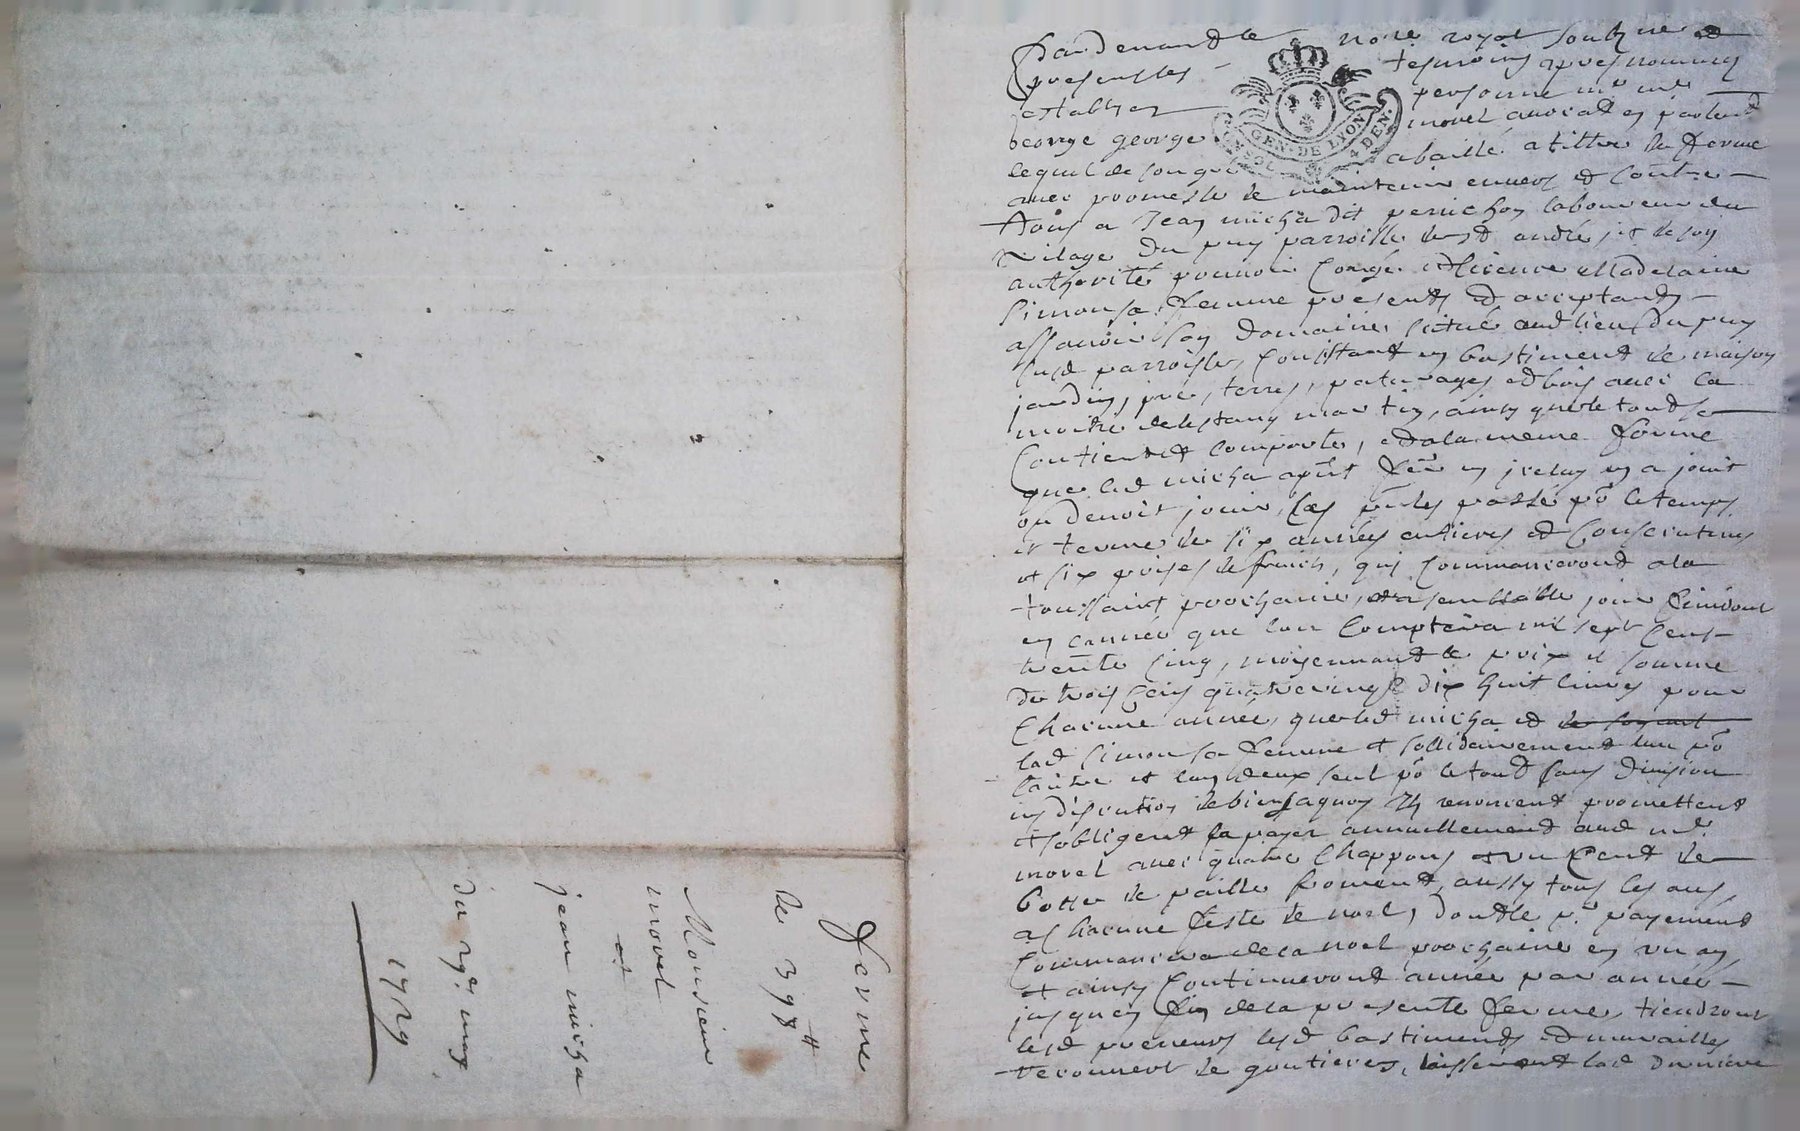 Ferme
de 398 #
Monsieur
morel
et
jean micha
du 29e may
1729
Pardevant le nore royal soubzne et
presents les tesmoins
establyer personne mr me
george george morel advocat en parlemt
lequel de son gré a baillé a tittre de ferme
avec promesse de maintenir envers et contre
tous a Jean micha dit perichon laboureur du
vilage du puy parroisse de st andré et de soy
authorité pouvoir congé et licence Madelaine
simon sa femme presents et acceptants
assavoir son domaine scitué aud lieu du puy
susd parroisse, consistant en bastiment de maison
jardin, pré, terres, paturages et bois avec la
moitié de lestang martin, ainsy que le tout se
contient et comporte, et a la meme forme
que led micha en a jouit
ou devoit jouir, les passé po le temps
et terme de six années entieres et consecutives
et six prises de fruits, qui commanceront a la
toussaint prochaine, et a semblable jour finiront
en lannée que lon comptera mil sept cent
trente cinq, moyennant le prix et somme
de trois cens quatre vingt dix huit livres pour
chacune année, que led micha et le soquant
lad simon sa femme et sollidairement lun po
lautre et lun deux seul po le tout sans division
ny discution de biens a quoy ils renoncent promettent
et sobligent payer annuellement aud me
morel avec quatre chappons et un cent de
botte de paille froment, aussy tous les ans
a chacune feste de noel, dont le pr payement
commancera de la noel prochaine en un an,
et ainsy continueront année par année
jusques fin de la presente ferme, tiendront
lesd preneurs lesd bastiments et murailles
recouvert de goutieres, laisseront lad derniere
GEN. DE LYON
4 DEN.